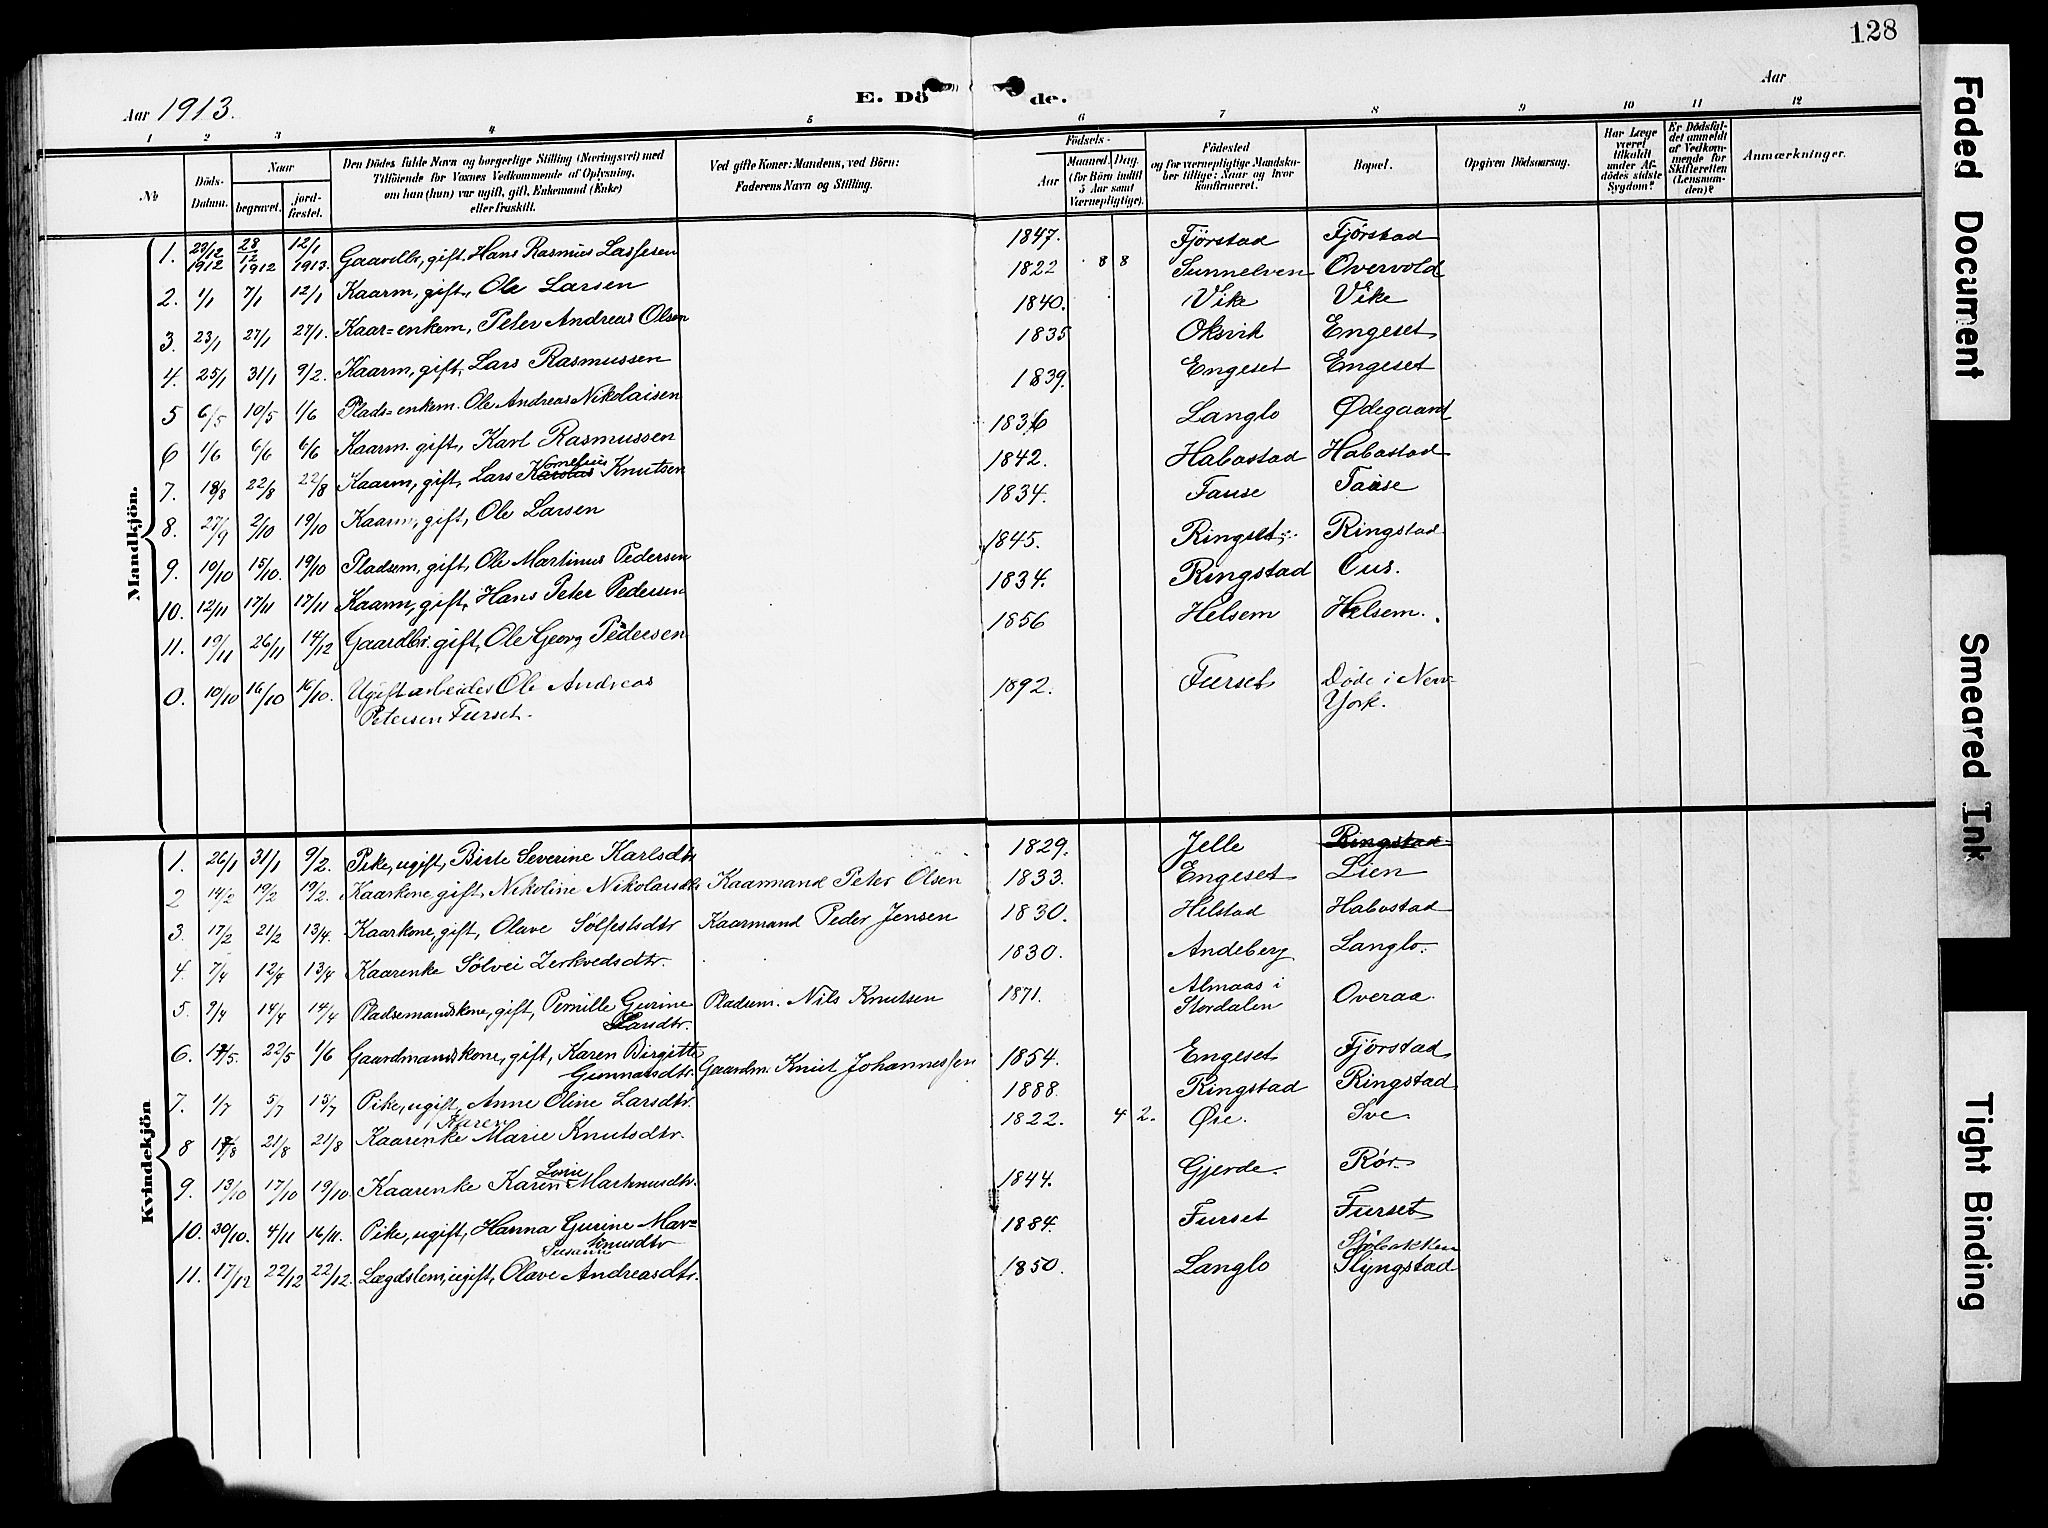 128
Aar 1913.
E. Dö
de.
Aar
1 2 3 4 5 6 7 8 9 10 11 12
No
Döds-Datum.
Naar
begravet.
jord-fæstet.
Den Dödes fulde Navn og borgerlige Stilling (Næringsvei) med
Tilföiende for Voxnes Vedkommende af Oplysning,
om han (hun) var ugift, gift, Enkemand (Enke)
eller fraskilt.
Ved gifte Koner: Mandens, ved Börn:
Faderens Navn og Stilling.
Födsels-
Aar
Maaned. Dag.
(for Börn indtil
5 Aar samt
Værnepligtige).
Födested
og for værnepligtige Mandska-
ber tillige: Naar og hvor
konfirmeret.
Bopæl.
Opgiven Dödsaarsag.
Har Læge
været
tilkaldt
under Af-
dödes sidste
Sygdom?
Er Dödsfal-
det anmeldt
af Vedkom-
mende for
Skifteretten
(Lensman-
den)?
Anmærkninger.
Mandkjön.
1. 23/12 1912 28/12 1912 12/1 1913. Gaardbr, gift. Hans Rasmus Lassesen 1847. Fjörstad Fjörstad
2. 1/1 7/1 12/1 Kaarm, gift, Ole Larsen 1822 8 8 Sunnelven Overvold
3. 23/1 27/1 27/1. Kaar=enkem, Peter Andreas Olsen 1840. Vike Vike
4. 25/1 31/1 9/2. Kaarm, gift, Lars Rasmussen 1835 Oksvik Engeset
5 6/5 10/5 1/6 Plads=enkem. Ole Andreas Nikolaisen 1839. Engeset Engeset
6 1/6 6/6 6/6 Kaarm. gift, Karl Rasmussen 1836 Langlo Ødegaard
7. 18/8 22/8 22/8 Kaarm, gift, Lars Kornelius Knutsen 1842. Habostad Habostad
8. 27/9 2/10 19/10 Kaarm, gift, Ole Larsen 1834. Fause Fause
9. 10/10 15/10. 19/10 Pladsem, gift, Ole Martinus Pedersen 1845. Ringset Ringstad
10. 12/11 17/11 17/11 Kaarm, gift, Hans Peter Pedersen 1834. Ringstad Cus.
11. 19/11 26/11 14/12 Gaardbr. gift, Ole Georg Pedersen 1856 Helsem Helsem.
0. 10/10 16/10 16/10. Ugift arbeider Ole Andreas 1892. Furset Døde i New-
Petersen Furset. York.
Kvindekjön
1. 26/1 31/1 9/2. Pike, ugift, Birte Severine Karlsdtr 1829. Jelle Ringstad
2 14/2 19/2 19/2. Kaarkone, gift, Nikoline Nikolaisdtr Kaarmand Peter Olsen 1833. Engeset Lien
3. 17/2 21/2 13/4. Kaarkone, gift, Olave Sölfestsdtr Kaarmand Peder Jensen 1830. Helstad Habostad
4. 7/4 12/4 13/4 Kaarenke Sölvei Zerkvedsdtr. 1830. Andeberg Langlo.
5. 9/4 14/4 14/4 Pladsemandskone, gift, Pernille Gurine Pladsem. Nils Knutsen 1871. Almaas i Overaa.
Larsdtr. Stordalen
6. 17/5. 22/5 1/6 Gaardmandskone, gift, Karen Birgitte 1854. Engeset Fjörstad
Gunnarsdtr. Gaardm. Knut Johannessen
7. 1/7 5/7 13/7 Pike, ugift, Anne Oline Larsdtr. 1888. Ringstad Ringstad
Karen
8 17/8 21/8 21/8 Kaarenke Marie Knutsdtr. 1822. 4 2. Øie. Sve
Lovise
9. 13/10 17/10 19/10. Kaarenke Karen Martinusdtr. 1844. Gjerde Rör.
10. 30/10. 4/11 16/11. Pike, ugift, Hanna Gurine Mar= 1884. Furset Furset
tinusdtr
Susanne Sjöbakken
11. 17/12 22/12 22/12. Lægdslem, ugift, Olave Andreasdtr. 1850. Langlo Slyngstad
Faded Document
Smeared Ink
Tight Binding